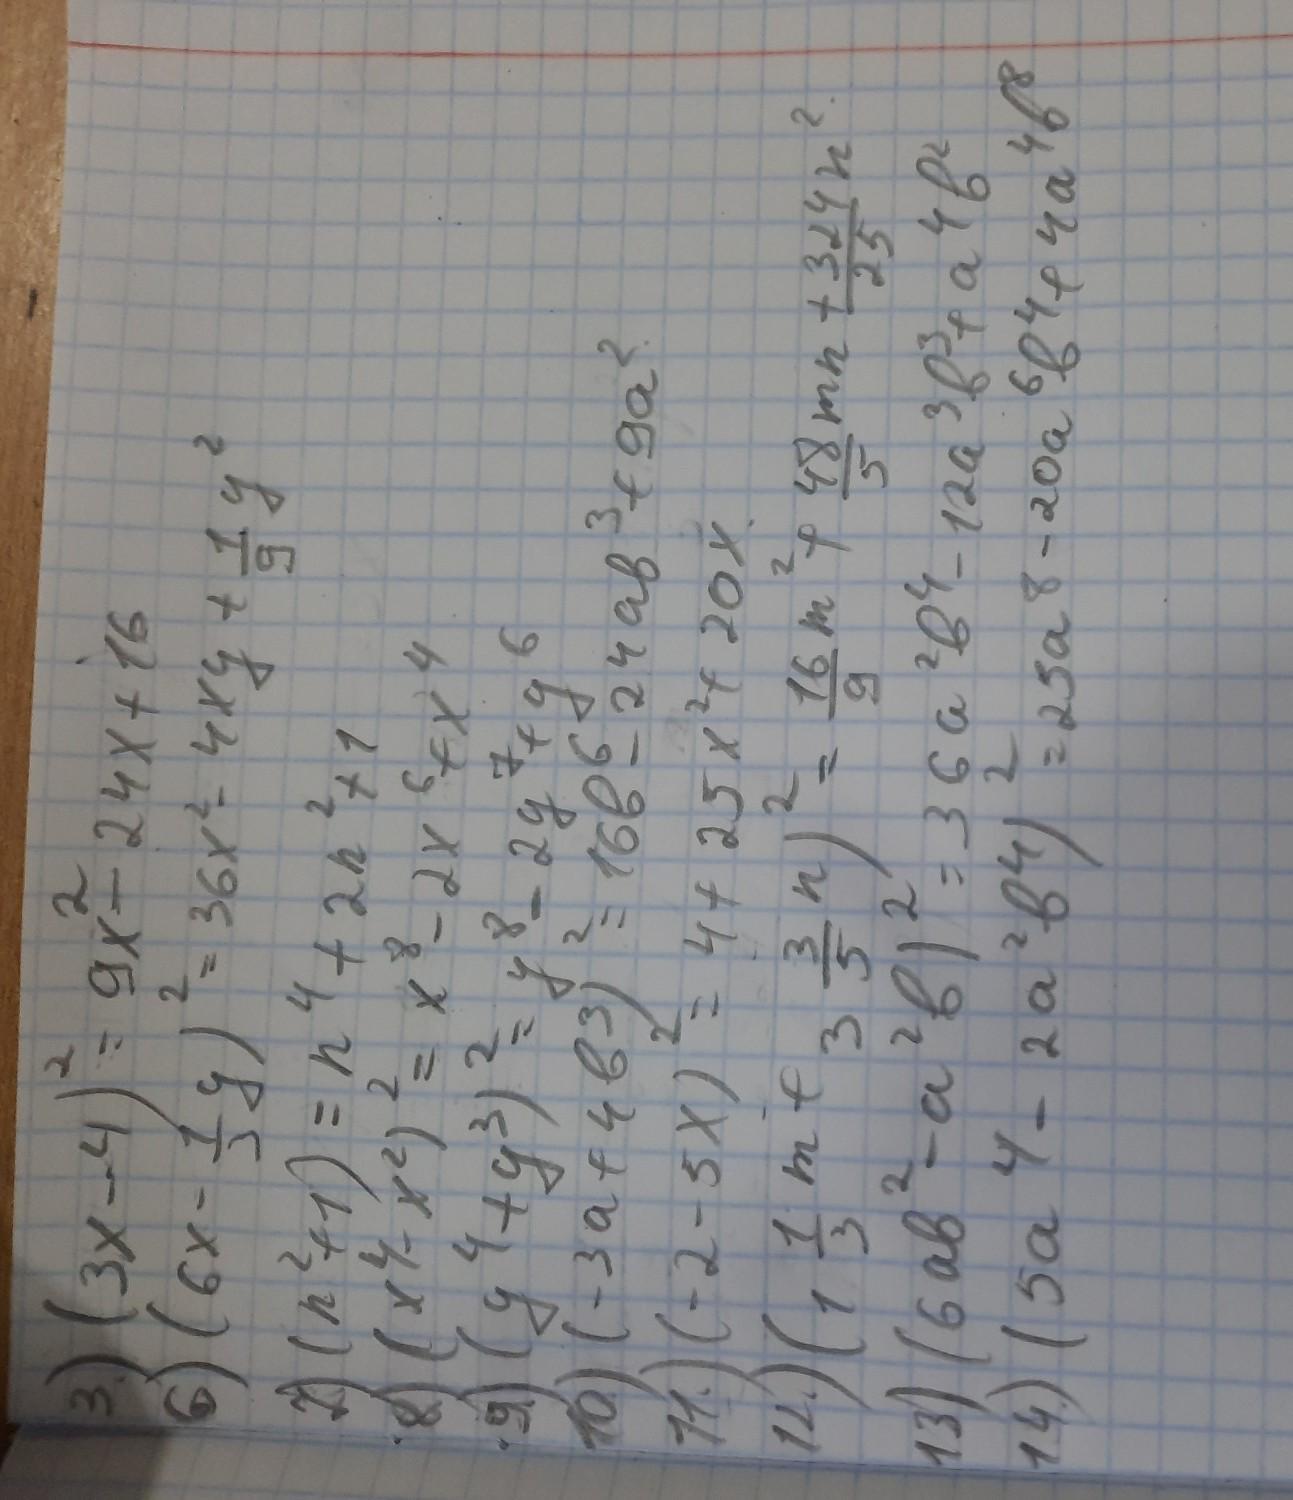 3.) (3x-4)² = 9x² - 24x + 16
6) (6x - 1/3 y)² = 36x² - 4xy + 1/9 y²
7) (n²+1) = n⁴ + 2n² + 1
8) (x⁴ - x²)² = x⁸ - 2x⁶ + x⁴
9) (y⁴ + y³)² = y⁸ - 2y⁷ + y⁶
10) (-3a + 4в3)² = 16в⁶ - 24ав³ + 9a².
11.) (-2 - 5x)² = 4 + 25x² + 20x.
12.) (1 1/3 m + 3 3/5 n)² = 16/9 m² + 48/5 mn + 324/25 n².
13) (6ав² - a²в)² = 36a²в⁴ - 12a³в³ + a⁴в²
14.) (5a⁴ - 2a²в⁴)² = 25a8 - 20a⁶в⁴ + 4a⁴в⁸